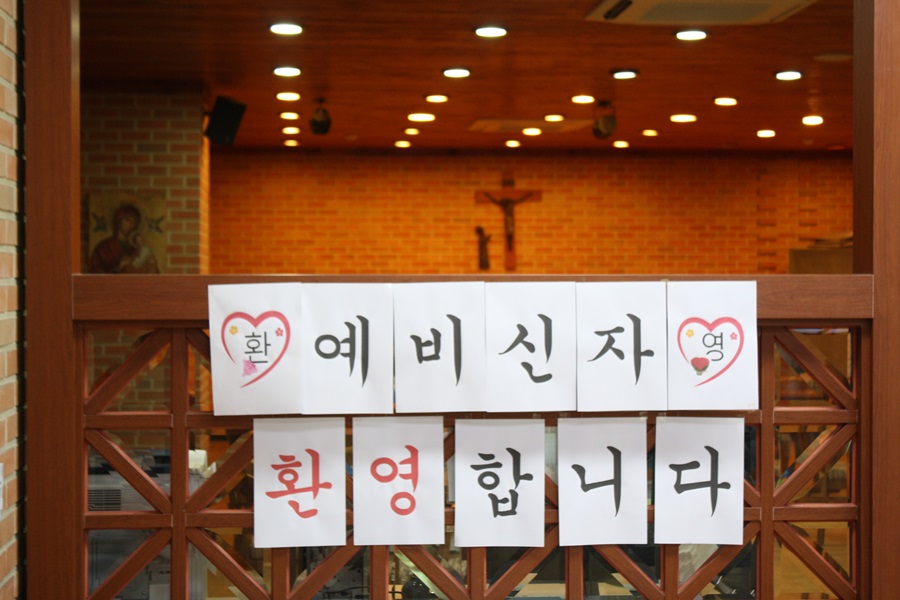 환 예비신자 영
환영합니다